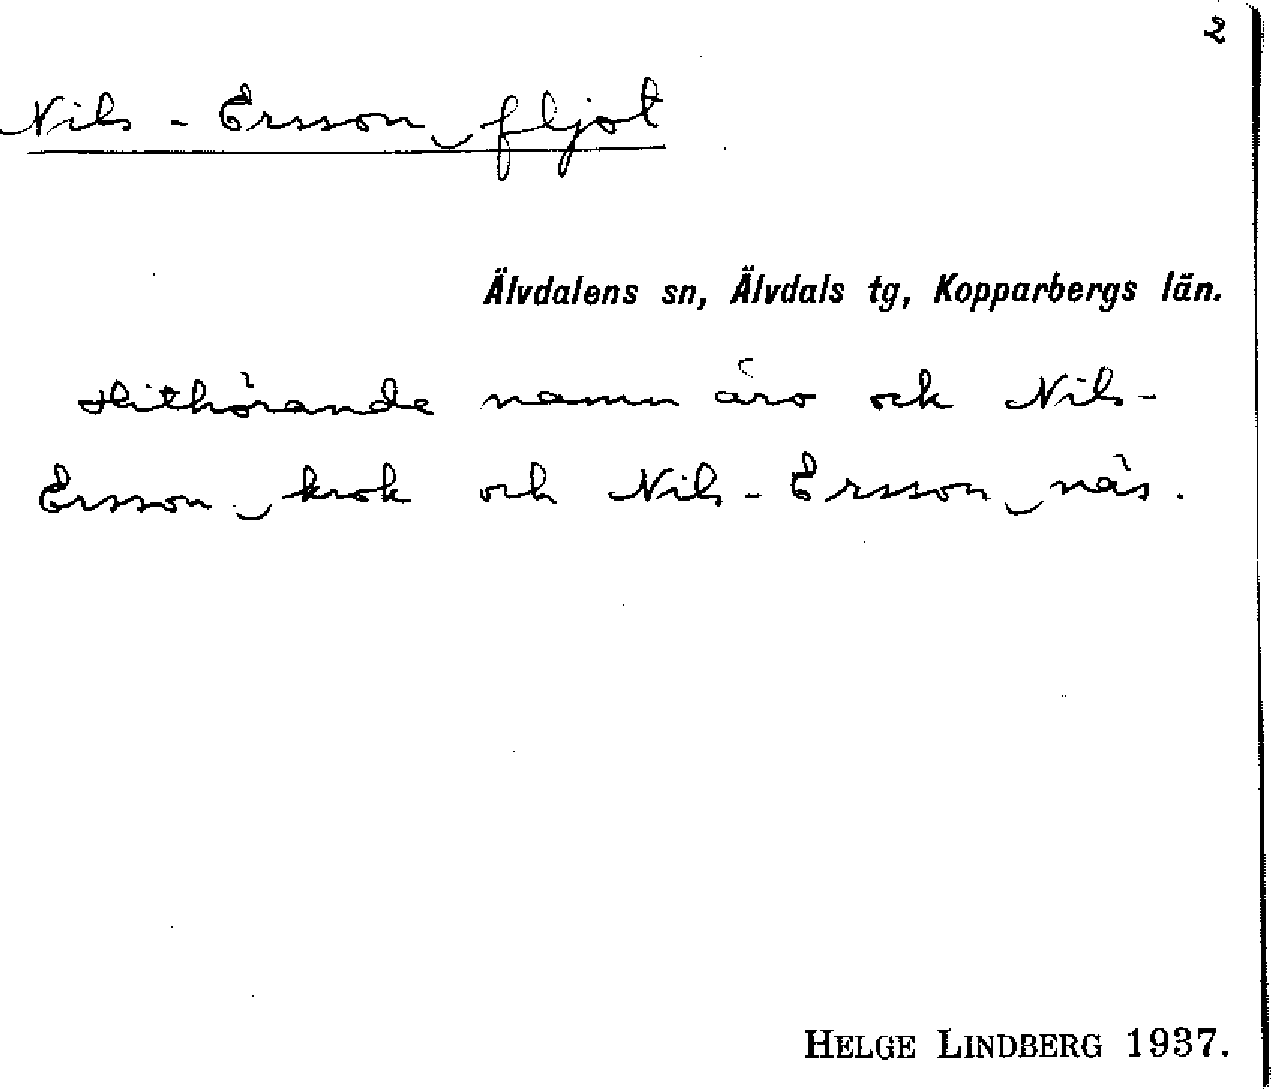 2
Nils-Ersson‿fljot
Älvdalens sn, Älvdals tg, Kopparbergs län.
Hithörande namn äro ock Nils-
Ersson‿krok och Nils-Ersson‿näs.
HELGE LINDBERG 1937.